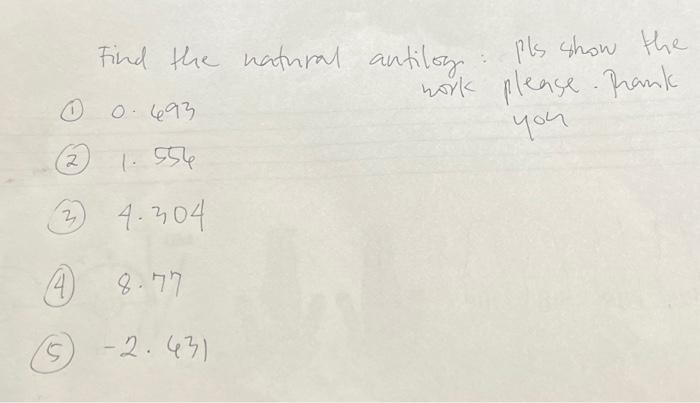 Find the natural antilog : pls show the
work please. Thank
you
① 0.693
② 1.556
③ 4.304
④ 8.77
⑤ -2.631